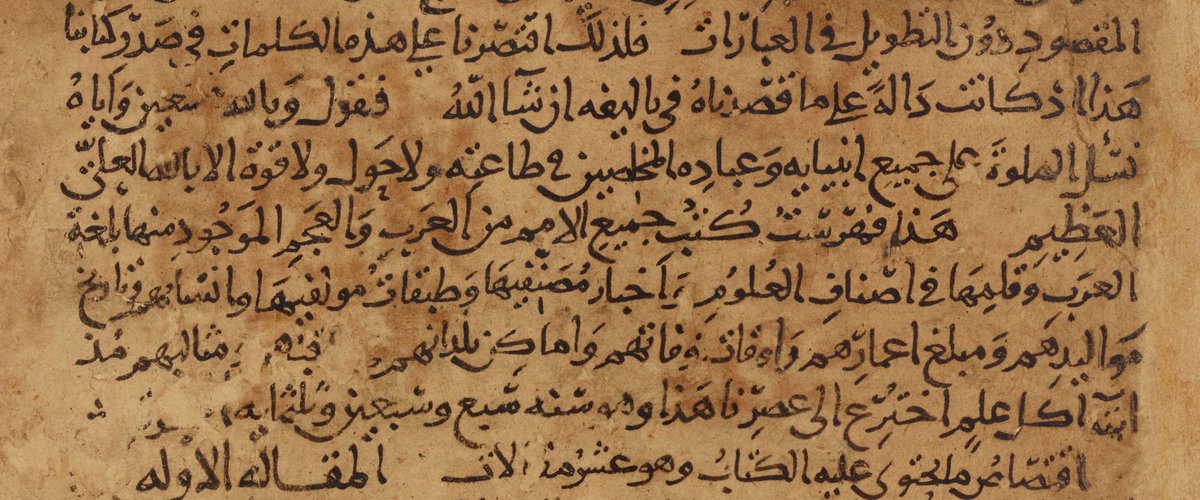 المقصود دون التطويل في العبارات فلذلك اقتصرنا على هذه الكلمات في صدر كتابنا
هذا اذ كانت دالة على ما قصدناه في تاليفه ان شآ الله فنقول وبالله نستعين واياه
نسئل الصلوة على جميع انبيايه وعباده المخلصين في طاعته ولا حول ولا قوة الا بالله العلي
العظيم هذا فهرست كتب جميع الامم من العرب والعجم الموجود منها بلغة
العرب وقلمها في اصناف العلوم واخبار مصنفيها وطبقات مولفيها وانسابهم وتاريخ
مواليدهم ومبلغ اعمارهم واوقات وفاتهم واماكن بلدانهم ومثالبهم منذ
ابتدآ كل علم اخترع الى عصرنا هذا وهو سنه سبع وسبعين وثلثمايه
اقتصاص ما يحتوى عليه الكتاب وهو عشر مقالات المقاله الاوله